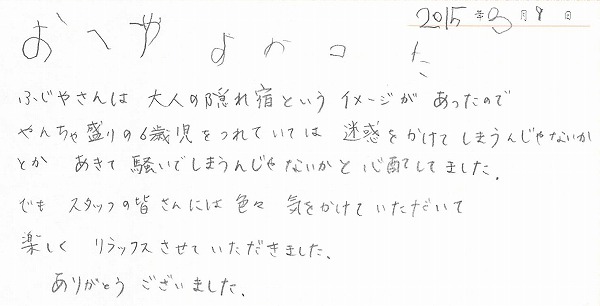 2015年9月9日
おへや よかった
ふじやさんは 大人の隠れ宿という イメージが あったので
やんちゃ盛りの6歳児をつれていては 迷惑をかけてしまうんじゃないか
とか あきて 騒いでしまうんじゃないかと 心配してました。
でも スタッフの皆さんには 色々 気をかけていただいて
楽しく リラックスさせていただきました。
ありがとう ございました。